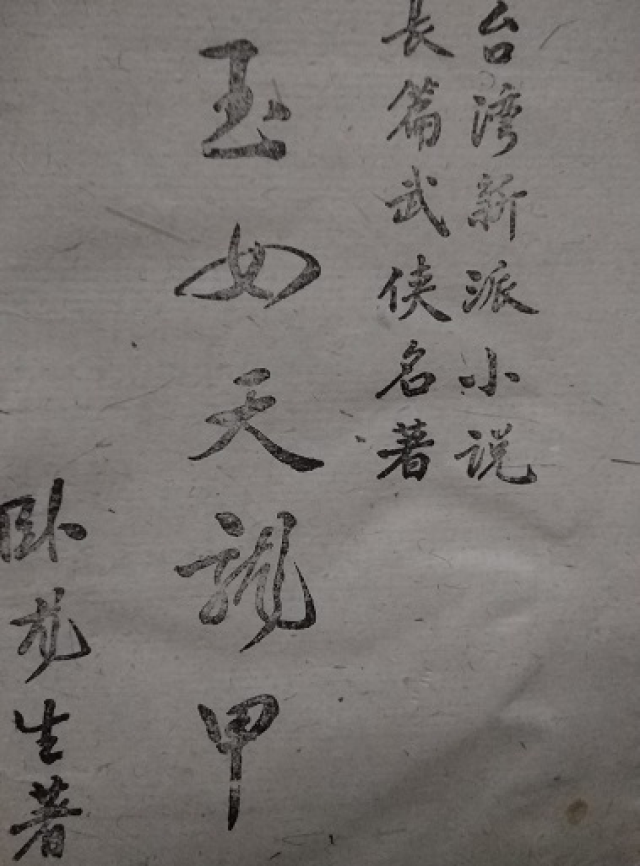 台湾新派小说
长篇武侠名著
玉女天龙甲
卧龙生著